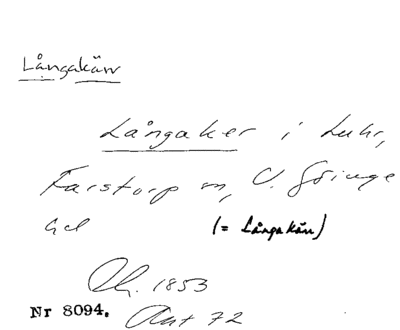 Långakärr
Långaker i Luhr,
Farstorp sn, V. Göinge
hd (= Långakärr)
Ch. 1853
Nr 8094. Ant 72